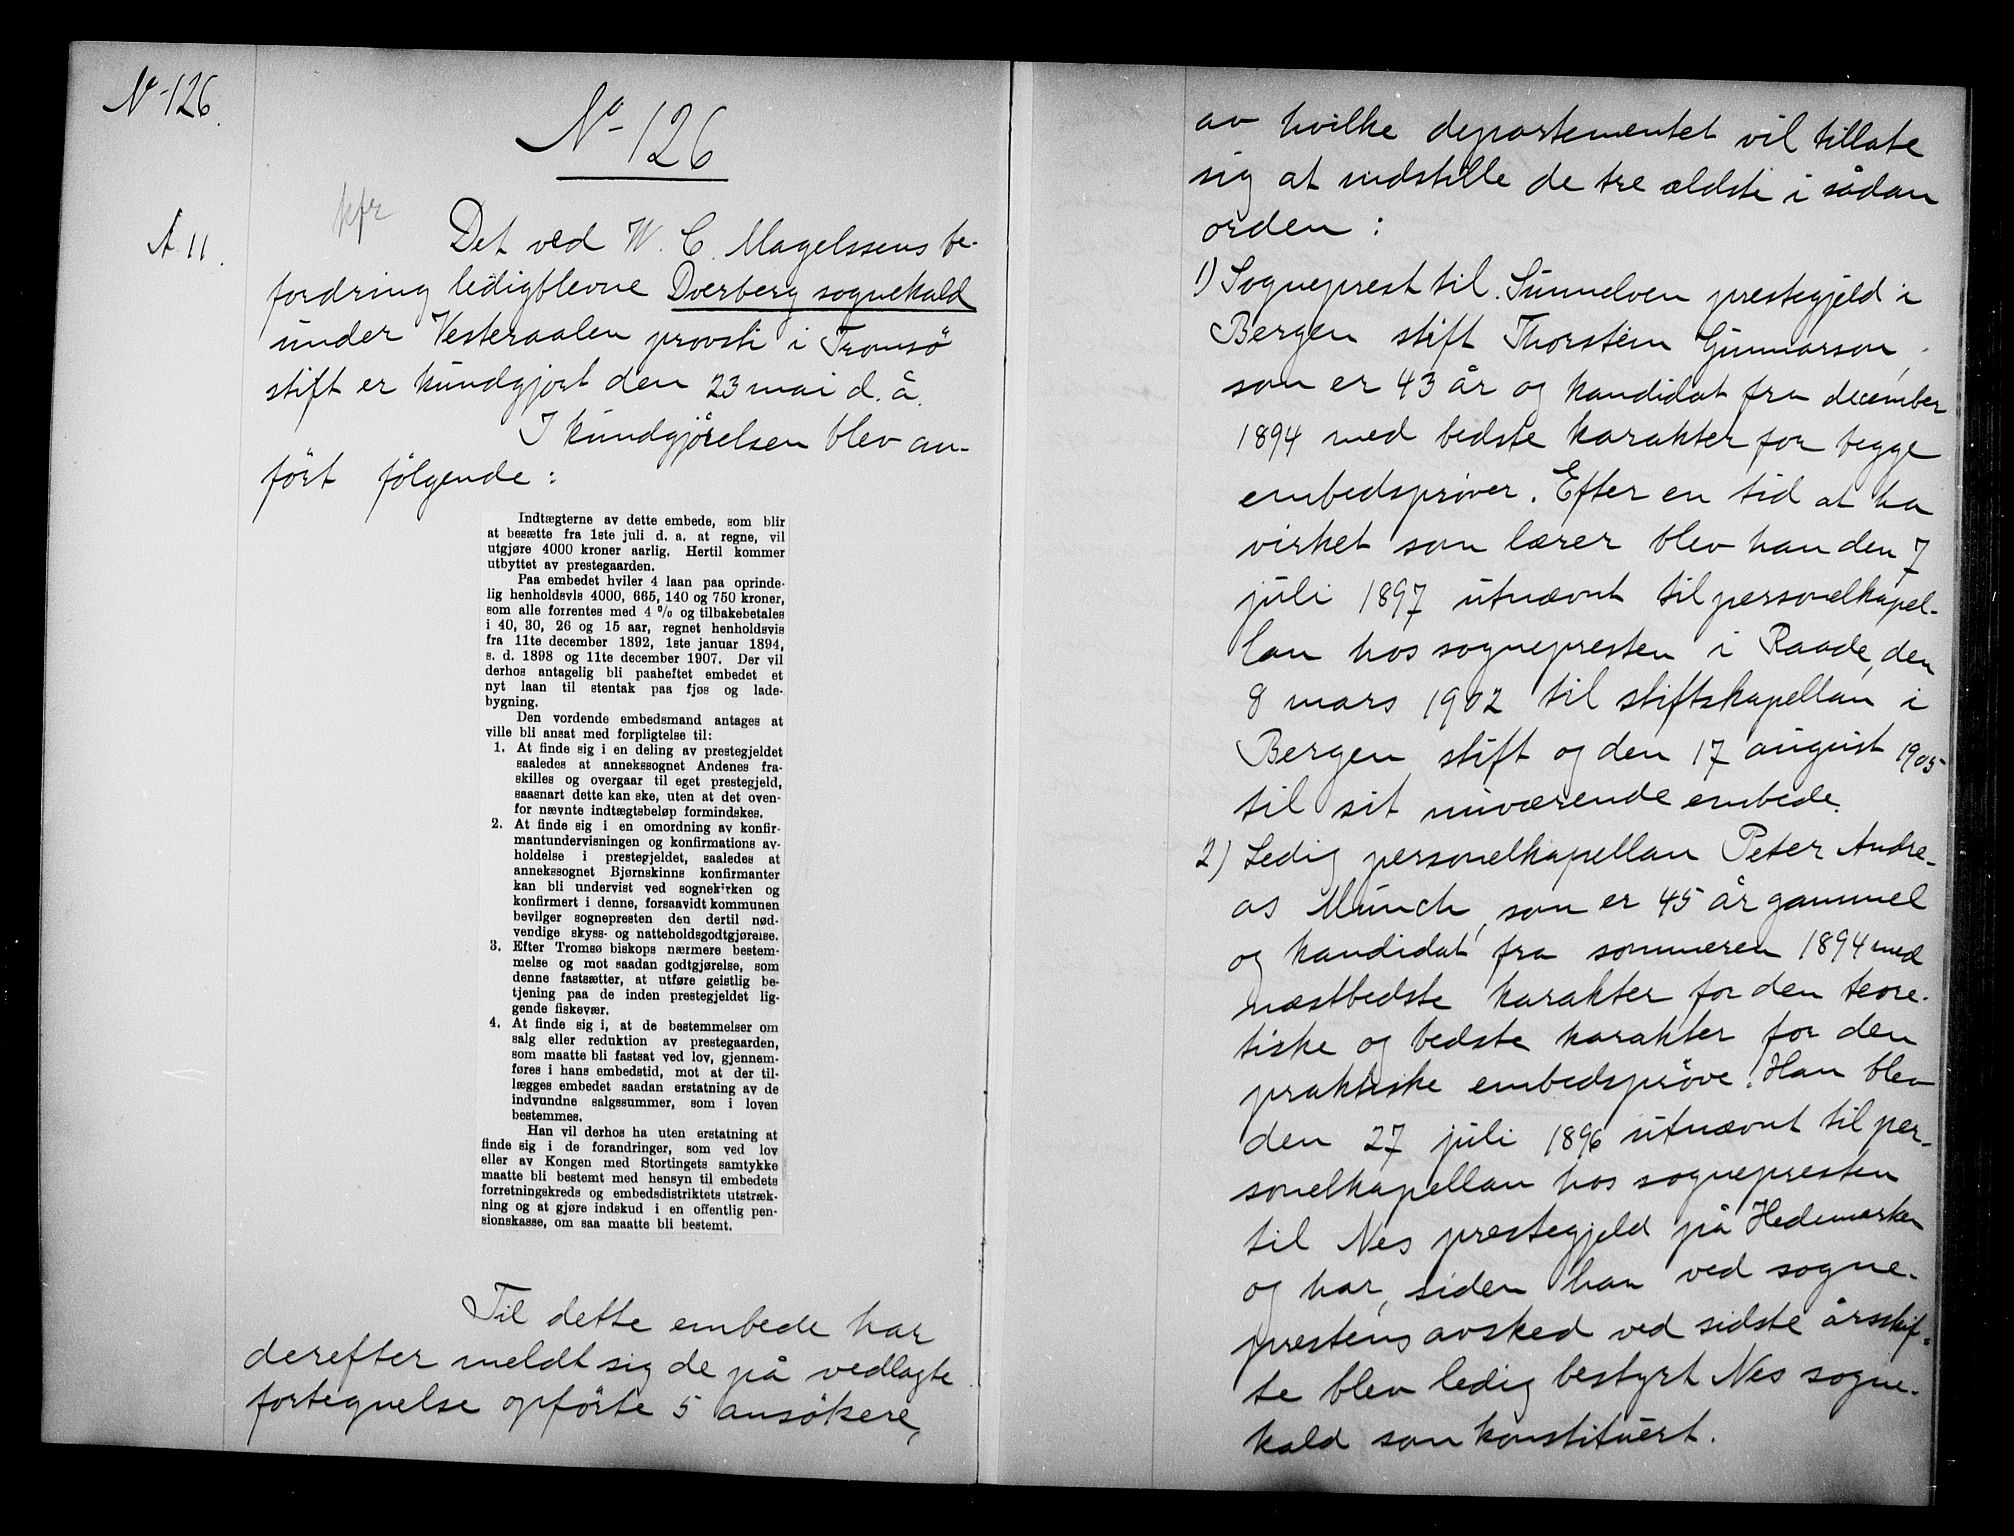 No 126.
No 126
kfr
A. 11.
Det ved W. C. Magelssens be-
fordring ledigblevne Dverberg sognekald
under Vesteraalen provsti i Tromsö
stift er kundgjort den 23 mai d. å.
I kundgjörelsen blev an-
fört følgende:
Indtægterne av dette embede, som blir
at besætte fra 1ste juli d. a. at regne, vil
utgjøre 4000 kroner aarlig. Hertil kommer
utbyttet av prestegaarden.
Paa embedet hviler 4 laan paa oprinde-
lig henholdsvls 4000, 665, 140 og 750 kroner,
som alle forrentes med 4 % og tilbakebetales
i 40, 30, 26 og 15 aar, regnet henholdsvis
fra 11te december 1892, 1ste januar 1894,
s. d. 1898 og 11te december 1907. Der vil
derhos antagelig bli paaheftet embedet et
nyt laan til stentak paa fjøs og lade-
bygning.
Den vordende embedsmand antages at
ville bli ansat med forpligtelse til:
1. At finde sig i en deling av prestegjeldet
saaledes at annekssognet Andenes fra-
skilles og overgaar til eget prestegjeld,
saasnart dette kan ske, uten at det oven-
for nævnte indtægtsbeløp formindskes.
2. At finde sig i en omordning av konfir-
mantundervisningen og konfirmations av-
holdelse i prestegjeldet, saaledes at
annekssognet Bjørnskinns konfirmanter
kan bli undervist ved sognekirken og
konfirmert i denne, forsaavidt kommunen
bevilger sognepresten den dertil nød-
vendige skyss- og natteholdsgodtgjørelse.
3. Efter Tromsø biskops nærmere bestem-
melse og mot saadan godtgjørelse, som
denne fastsætter, at utføre geistlig be-
tjening paa de inden prestegjeldet lig-
gende fiskevær.
4. At finde sig i, at de bestemmelser om
salg eller reduktion av prestegaarden,
som maatte bli fastsat ved lov, gjennem-
føres i hans embedstid, mot at der til-
lægges embedet saadan erstatning av de
indvundne salgssummer, som i loven
bestemmes.
Han vil derhos ha uten erstatning at
finde sig i de forandringer, som ved lov
eller av Kongen med Stortingets samtykke
maatte bli bestemt med hensyn til embedets
forretningskreds og embedsdistriktets utstræk-
ning og at gjøre indskud i en offentlig pen-
sionskasse, om saa maatte bli bestemt.
Til dette embede har
derefter meldt sig de på vedlagte
fortegnelse opförte 5 ansökere,
av hvilke departementet vil tillate
sig at indstille de tre ældste i sådan
orden:
1) Sogneprest til Sunnelven prestegjeld i
Bergen stift Thorstein Gunnarson,
som er 43 år og kandidat fra december
1894 med bedste karakter for begge
embedsprøver. Efter en tid at ha
virket som lærer blev han den 7
juli 1897 utnævnt til personelkapel-
lan hos sognepresten i Raade, den
8 mars 1902 til stiftskapellan i
Bergen stift og den 17 august 1905
til sit nuværende embede.
2) Ledig personelkapellan Peter Andre-
as Munch, som er 45 år gammel
og kandidat fra sommeren 1894 med
næstbedste karakter for den teore-
tiske og bedste karakter for den
praktiske embedspröve. Han blev
den 27 juli 1896 utnævnt til per-
sonelkapellan hos sognepresten
til Nes prestegjeld på Hedemarken
og har, siden han ved sogne-
prestens avsked ved sidste årsskif-
te blev ledig bestyrt Nes sogne-
kald som konstituert.